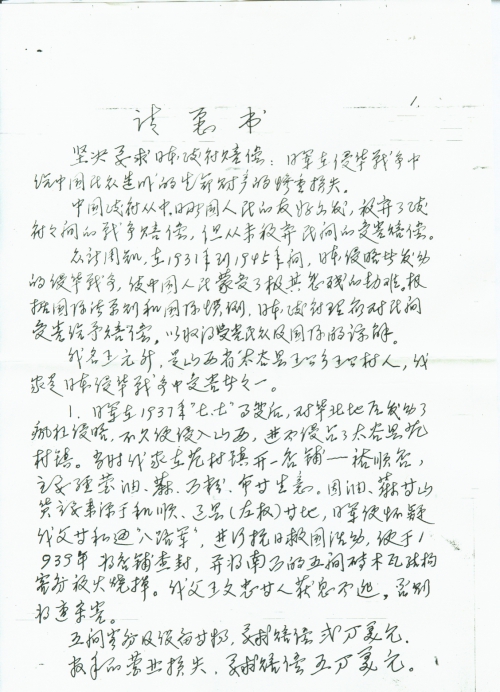 1.
请愿书
坚决要求日本政府赔偿：日军在侵华战争中
给中国民众造成的生命财产的惨重损失。
中国政府从中日两国人民的友好出发，放弃了政
府之间的战争赔偿，但从未放弃民间的受害赔偿。
众所周知，在1931年到1945年间，日本侵略者发动
的侵华战争，使中国人民蒙受了极其悲残的劫难。根
据国际法原则和国际惯例，日本政府理应对民间
受害给予赔偿。以取得受害民众及国际的谅解。
我名王元升，是山西省太谷县王公乡王公村人，我
家是日本侵华战争中受害者之一。
1. 日军在1937年"七.七"事变后，对华北地区发动了
疯狂侵略，不久便侵入山西，进而侵占了太谷县范
村镇。当时我家在范村镇开一店铺——裕顺店，
主要经营油、麻、百粉、布等生意。因油、麻等山
货主要来源于和顺、辽县（左权）等地，日军便怀疑
我父等和通"八路军"，进行抗日救国活动，便于1
939年将店铺查封，并将南方的五间砖木瓦结构
客房放火烧掉。我父王文忠等人获息不迟，否则
将遭杀害。
五间客房及设备等物，要求赔偿贰万美元。
数年的营业损失，要求赔偿五万美元。